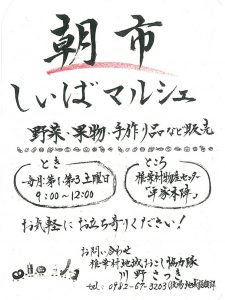 朝市
しいばマルシェ
野菜・果物・手作り品など販売
とき
毎月第1・第3土曜日
9:00～12:00
ところ
椎葉村物産センター
「平家本陣」
お気軽にお立ち寄りください!
お問い合わせ
椎葉村地域おこし協力隊
川野さつき
tel: 0982-67-3203